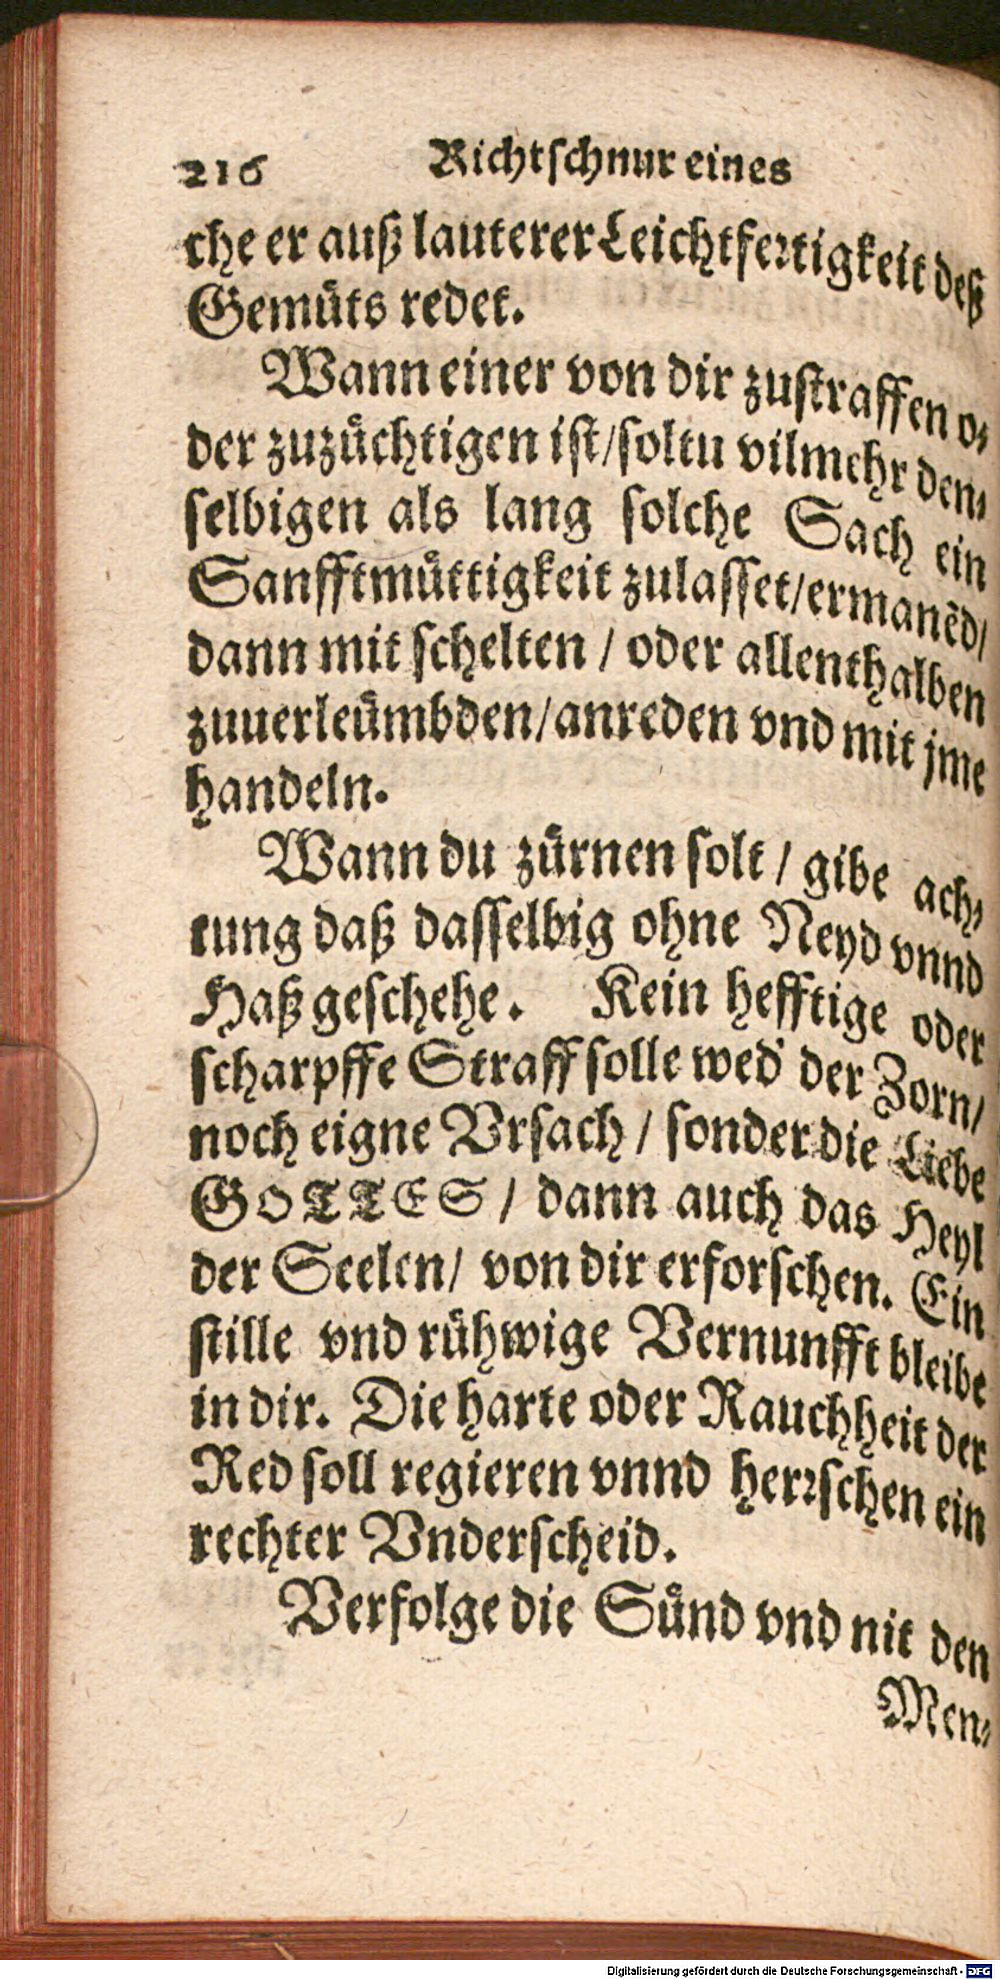 216 Richtschnur eines
che er auß lauterer Leichtfertigkeit deß
Gemuͤts redet.
Wann einer von dir zustraffen o⸗
der zuzuͤchtigen ist/soltu vilmehr den⸗
selbigen als lang solche Sach ein
Sanfftmuͤttigkeit zulasset/ermanẽd/
dann mit schelten / oder allenthalben
zuuerleuͤmbden/anreden vnd mit jme
handeln.
Wann du zuͤrnen solt / gibe ach⸗
tung daß dasselbig ohne Neyd vnnd
Haß geschehe. Kein hefftige oder
scharpffe Straff solle wed' der Zorn/
noch eigne Vrsach / sonder die Liebe
GOTTES / dann auch das Heyl
der Seelen/ von dir erforschen. Ein
stille vnd ruͤhwige Vernunfft bleibe
in dir. Die harte oder Rauchheit der
Red soll regieren vnnd herrschen ein
rechter Vnderscheid.
Verfolge die Suͤnd vnd nit den
Men⸗
Digitalisierung gefördert durch die Deutsche Forschungsgemeinschaft - DFG